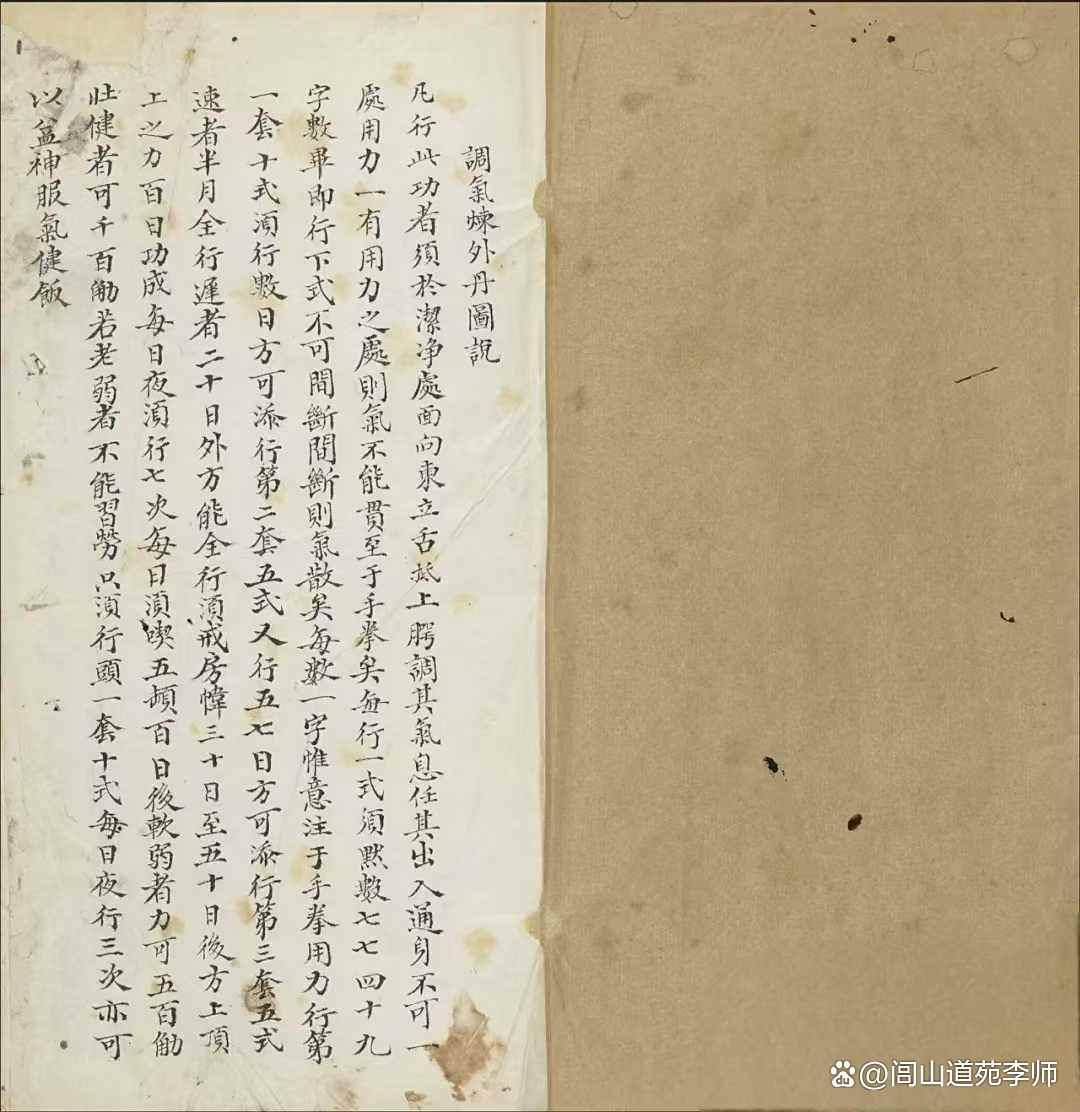 調氣煉外丹圖說
凡行此功者須於潔净處面向東立舌抵上腭調其氣息任其出入通身不可一
處用力一有用力之處則氣不能貫至于手拳矣每行一式須默數七七四十九
字數畢即行下式不可間斷間斷則氣散矣每數一字惟意注于手拳用力行第
一套十式須行數日方可添行第二套五式又行五七日方可添行第三套五式
速者半月全行遲者二十日外方能全行須戒房幃三十日至五十日後方上頂
上之力百日功成每日夜須行七次每日須喫五頓百日後軟弱者力可五百觔
壯健者可千百觔若老弱者不能習勞只須行頭一套十式每日夜行三次亦可
以益神服氣健飯
@闾山道苑李师